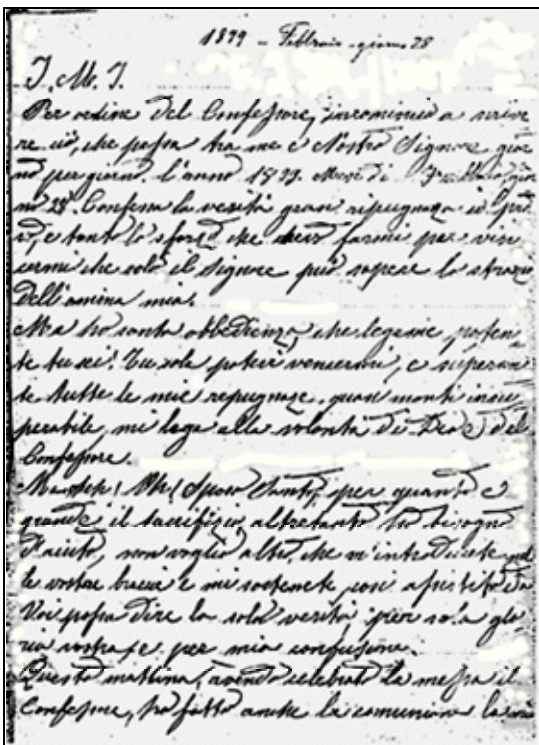 1899 - Febbraio - giorno 28
J. M. J.
Per ordine del Confessore, incomincio a scrive
re ciò, che passa tra me e Nostro Signore gior
no per giorno. l'anno 1899. Mese di Febbraio, gior
no 28. Confesso la verità gran ripugnaza
e tanto lo sforzo che devo farmi per vin
cermi che solo il Signore può sapere lo strazio
dell'anima mia.
Ma ho santa obbedienza, che legame poten
te tu sei! Tu sola potevi vincermi, e superan
do tutte le mie repugnaze, quasi monti insu
perabile, mi lega alla volontà di Dio e del
Confessore.
Ma deh! Oh! Sposo Santo, per quanto è
grande il sacrifizio, altretanto ho bisogno
d'aiuto, non voglio altro, che m'introduciate nel
le vostre braccia e mi sostenete, così assistita da
Voi possa dire la sola verità, per sola glo
ria vostra, e per mia confusione.
Questa mattina, avendo celebrato la messa il
Confessore, ho fatto anche la comunione